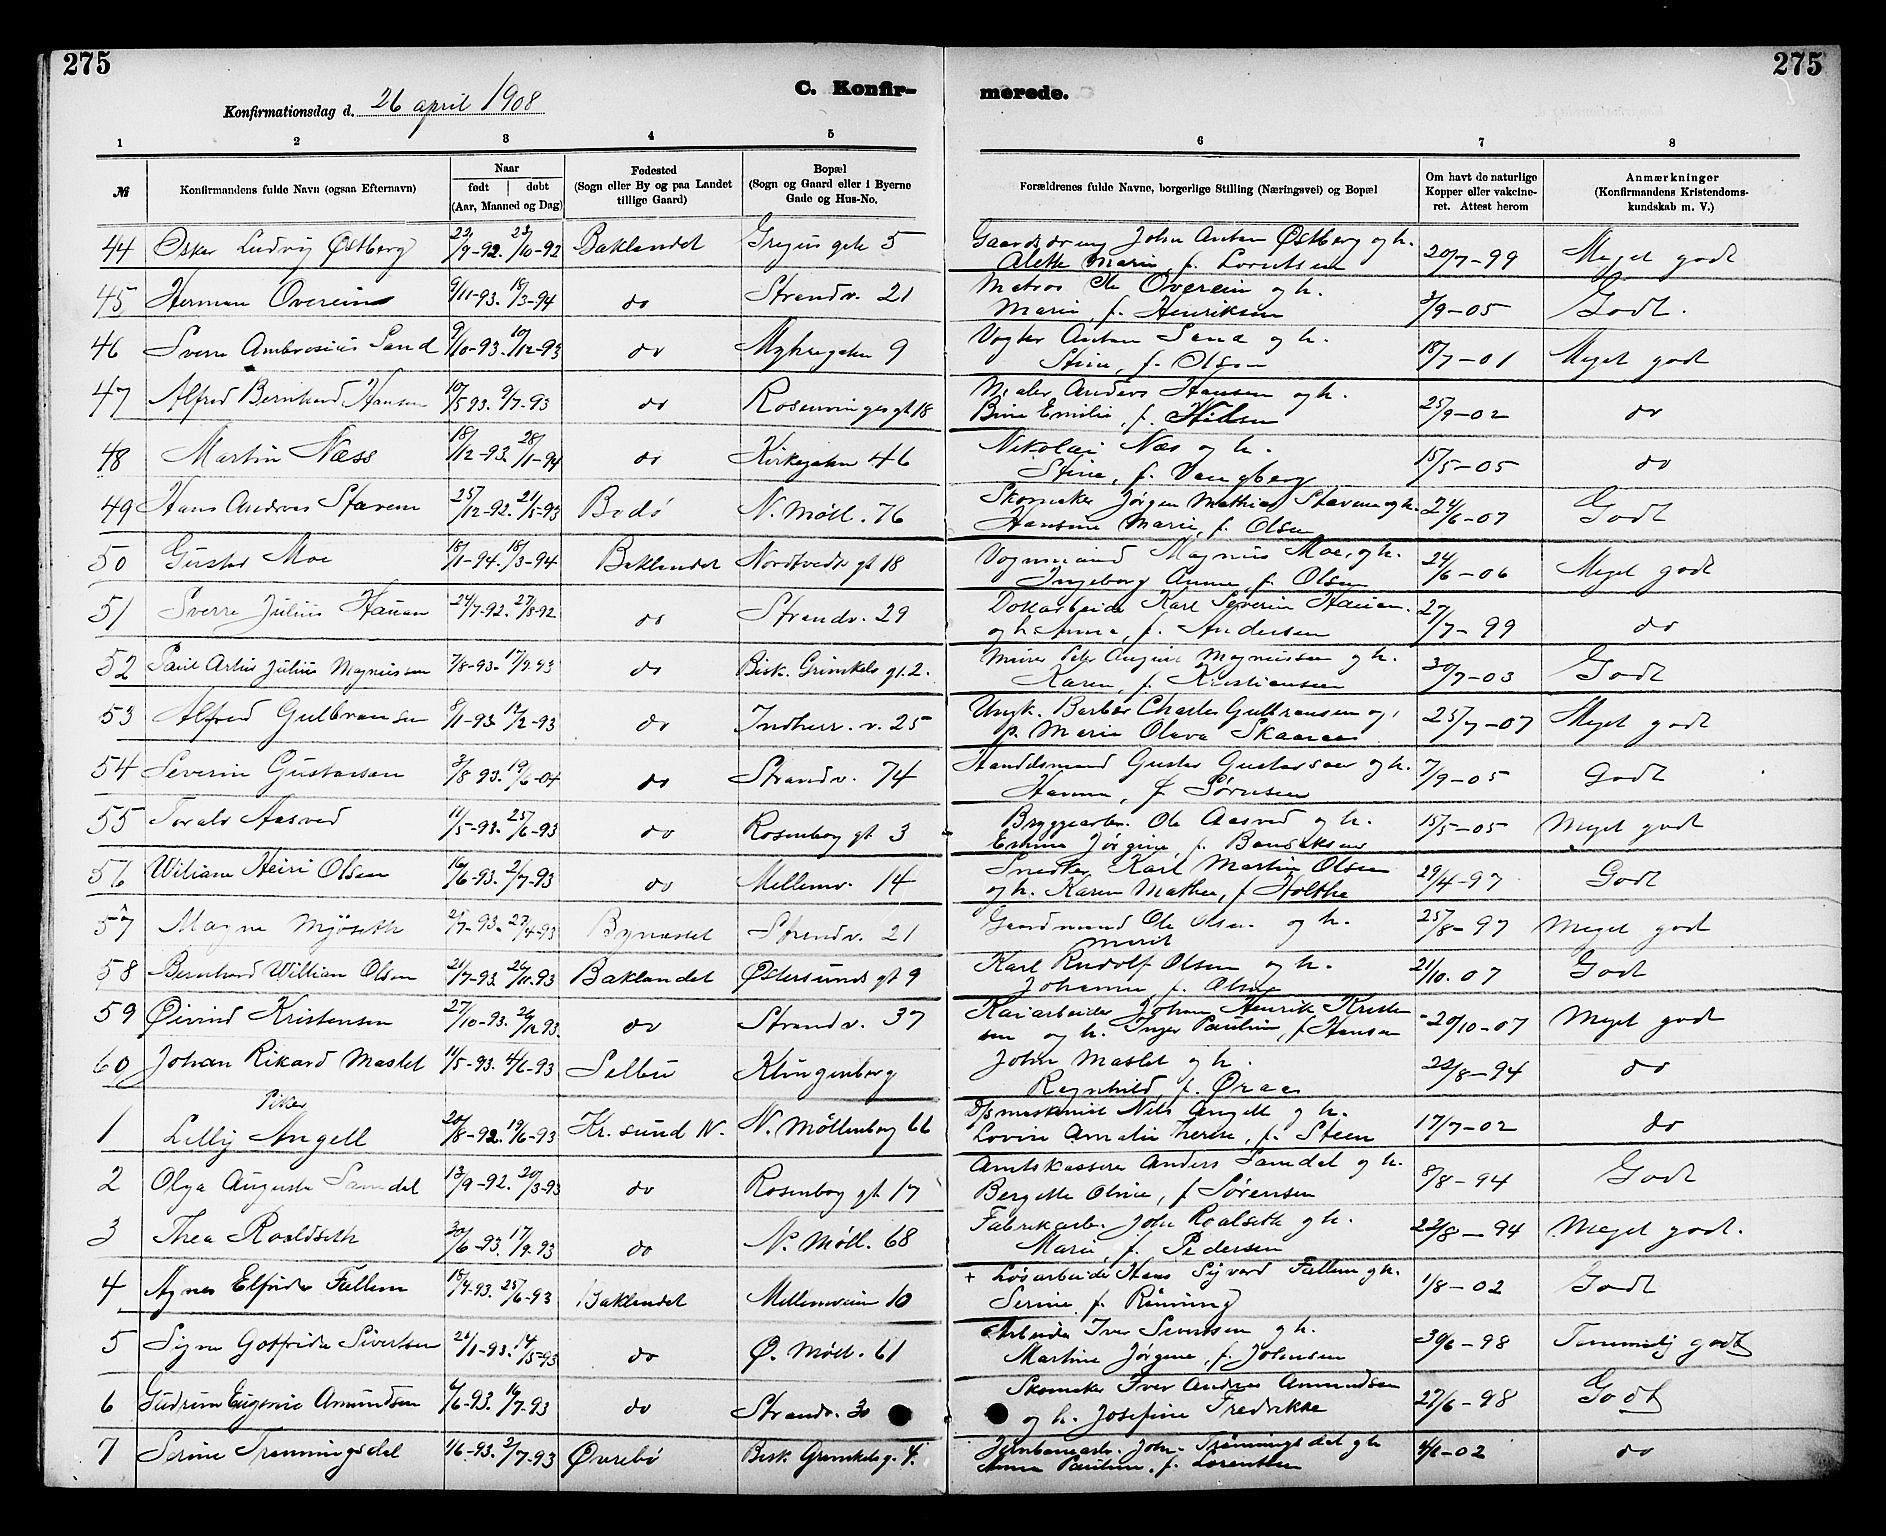 275
275
C. Konfir-
merede.
Konfirmationsdag d. 26 april 1908
1 2 3 4 5 6 7 8
№
Konfirmandens fulde Navn (ogsaa Efternavn)
Naar
født døbt
(Aar, Maaned og Dag)
Fødested
(Sogn eller By og paa Landet
tillige Gaard)
Bopæl
(Sogn og Gaard eller i Byerne
Gade og Hus-No.
Forældrenes fulde Navne, borgerlige Stilling (Næringsvei) og Bopæl
Om havt de naturlige
Kopper eller vakcine-
ret. Attest herom
Anmærkninger
(Konfirmandens Kristendoms-
kundskab m. V.)
44 Oskar Ludvig Østberg 23/9-92. 23/10-92 Baklandet 5 John Anton Østberg og h. 20/7-99 Meget godt
Alette Marie, f. Lorntsen
45 Herman Overein 9/11-93. 18/3-94 do Strandv. 21 Matros Ole Overein og h. 3/9-05 Godt.
Marie, f. Henriksen
46 Sverre Ambrosius Sand 9/10-93. 10/12-93 do 9 Vogter Anton Sand og h. 18/7-01 Meget godt
Stine, f. Olsen
47 Alfred Bernhard Hansen 10/5 93. 9/7-93 do Rosenvinges gt 18 Maler Anders Hansen og h. 25/9-02 do
Emilie, f.
48 Martin Næss 18/12-93. 28/1-94 do Kirkegaten 46 Nikolai Næs og h. 15/5-05 do
Stine, f. Vangberg
49 Hans Andreas Stavem 25/12-92. 21/5-93 Bodø N. Möll. 76 Skomaker Jørgen Mathias og h. 24/6-07 Godt
Hansine Marie, f. Olsen
50 Gustav Moe 18/1-94. 18/3-94 Baklandet gt 18 Vognmand Magnus Moe, og h. 24/6-06 Meget godt
Ingeborg Anna, f. Olsen
51 Sverre Julius Hauan 24/7-92. 27/8-92 do Strandv. 29 Karl Severin Hauan 27/7-99 do
og h. Anna, f. Andersen
52 Paul Julius Magnussen 7/8-93. 17/9.93 do Bisk. Grimkels gt. 2. Murer Peter August Magnussen og h. 30/7-03 Godt
Karen, f. Kristiansen
53 Alfred Gulbransen 8/1-93. 12/2-93 do Indherr. v. 25 Ungk. Barber Charles Gulbransen og 25/7-07 Meget godt
p. Marie Olava Skaaraas
54 Severin Gustavsen 3/8 93. 19/6-04 do Strandv. 74 Handelsmand Gustav og h. 7/9-05 Godt
Hanna, f. Sørensen
55 Toralv Aasved 11/5-93. 25/6-93 do Rosenborg gt 3 Bryggearb. Ole Aasved og h. 15/5-05 Meget godt
Jørgine, f.
56 Olsen 16/6-93. 2/7-93 do Mellemv. 14 Snedker Karl Martin Olsen 29/4-97 Godt
og h. Karen Mathea, f Holthe
57 Magne Mjöseth Bynesset Strandv. 21 Gaardmand Ole Olsen og h. 25/8-97 Meget godt
Marit
58 Bernhard William Olsen 21/7-93. 26/11-93 Baklandet Østersunds gt 9 Karl Rudolf Olsen og h. 21/10. 07 Godt
Johanna f. Olsen
59 Øivind Kristensen 27/10-93. 26/12 93 do Strandv. 37 Kaiarbeider Johan Henrik Kristen 20/10-07 Meget godt
sen og h. Inger Pauline, f Hansen
60 Johan Rikard Maslet 11/5-93. 4/6-93 Selbu Klingenberg John Maslet og h. 22/8-94 do
Ragnhild f. Øraas
Piker
1 Lilly Angell 20/8-92. 19/6-93 Kr. sund N. N. Möllenberg 66 Nils Angell og h. 17/7-02 do
Lovise Amalie Therese, f. Steen
2 Olga Augusta Samdal 13/9-92. 20/3-93 do Rosenborg gt 17 Amtskasserer Anders Samdal og h. 8/8-94 Godt
Bergitte Olivie, f Sørensen
3 Thea Roaldseth 30/6-93. 17/9-93 do N. Möll. 68 Fabrikarb. John Roalseth og h. 22/8-94 Meget godt.
Marie, f. Pedersen
4 Agnes Elfrida Fallem 18/4-93. 25/6-93 Baklandet Mellemveien 10 + Løsarbeider Hans Sigvard Fallem og h. 1/8-02 Godt
Serine f. Rönning
5 Signe Gotfrida Sivertsen 26/1-93. 14/5-93 do Ø. Möll. 61 Arbeider Iver Sivertsen og h. 30/6-98 Temmelig godt
Martine Jørgine, f. Johnsen
6 Gudrun Eugenie Amundsen 6/6-93. 16/7-93 do Strandv. 30 Skomaker Iver Andreas Amundsen 27/6-98 Godt
og h. Josefine Fredrikke
7 Serine Trønningsdal 1/6-93. 2/7-93 Øvrebø Bisk. Grimkels g. 4. Jernbanearb. John Trønningsdal og h 4/6-02 do
Anna Pauline, f. Lorentsen